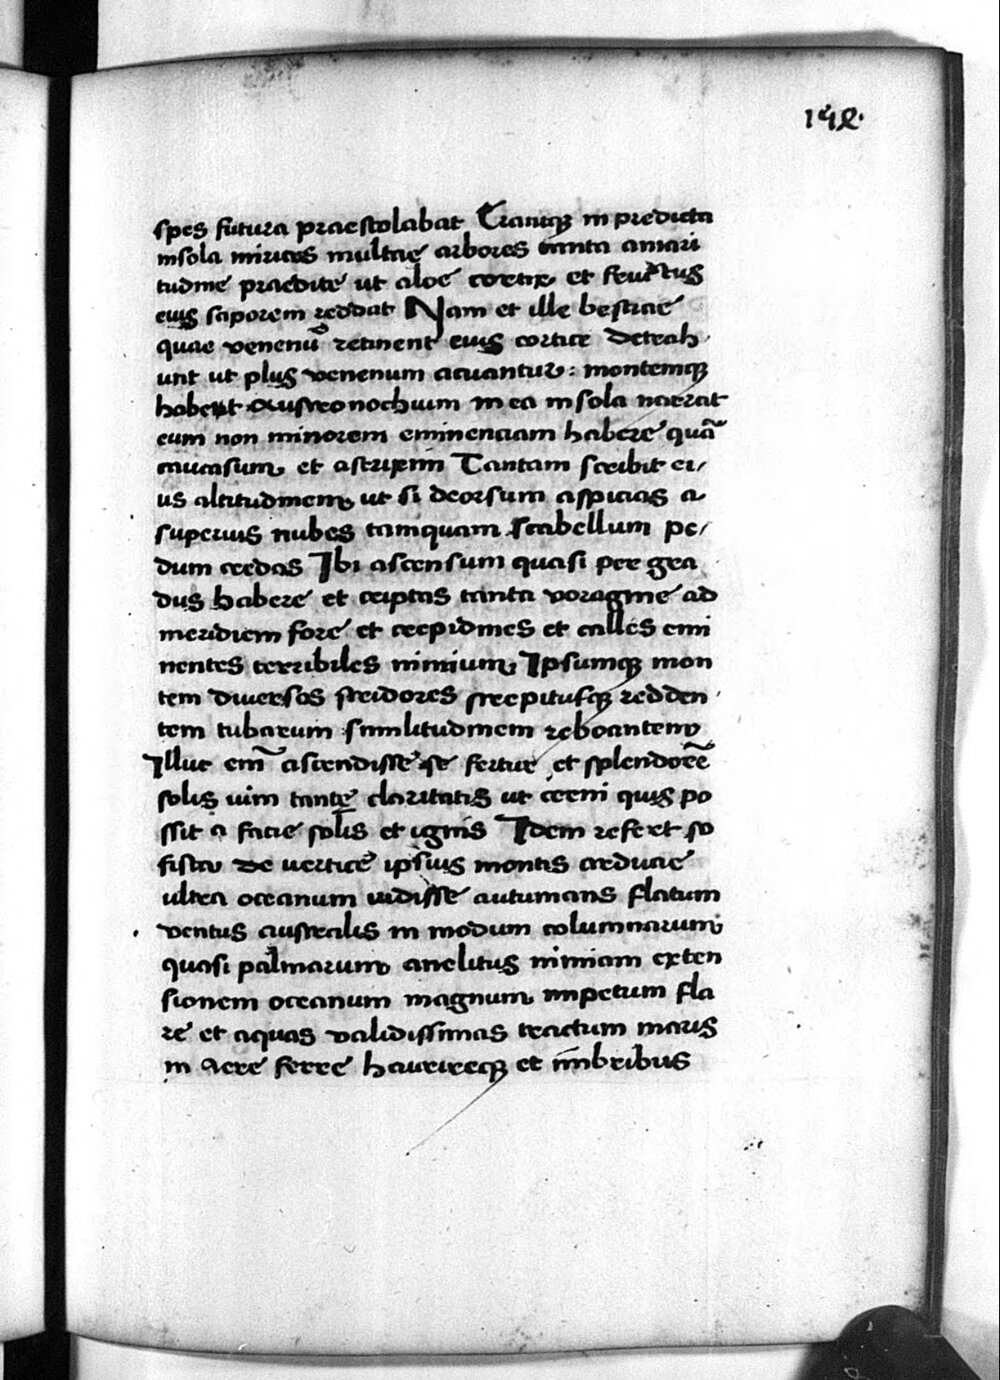 spes futura praestolabat Erantq; in predicta
insola mirices multae arbores tanta amari
tudine praedite ut aloe cortix et fructus
eius saporem reddat Nam et ille bestiae
quae venenū retinent eius cortice detrah
unt ut plus venenum acuantur: montemq;
habent Austronochium in ea insola narrat
eum non minorem eminenciam habere quā
caucasum et astrixim Tantam scribit ei/
us altitudinem ut si deorsum aspicias a
superius nubes tamquam scabellum pe/
dum credas Ibi ascensum quasi per gra
dus habere et criptas tanta voragine ad
meridiem fore et crepidines et calles emi
nentes terribiles nimium Ipsumq; mon
tem diversos stridores strepitusq; redden
tem tubarum similitudinem reboantem
Illuc em̄ ascendisse se fertur et splendorē
solis uim tantę claritatis ut cerni quis po
ssit a facie solis et ignis Idem refert so
fista de vertice ipsius montis arduae
ultra oceanum uidisse autumans flatum
ventus australis in modum columnarum
quasi palmarum anelitus nimiam exten
sionem oceanum magnum impetum fla
re et aquas validissimas tractum maris
in aere ferre haurireq; et imbribus